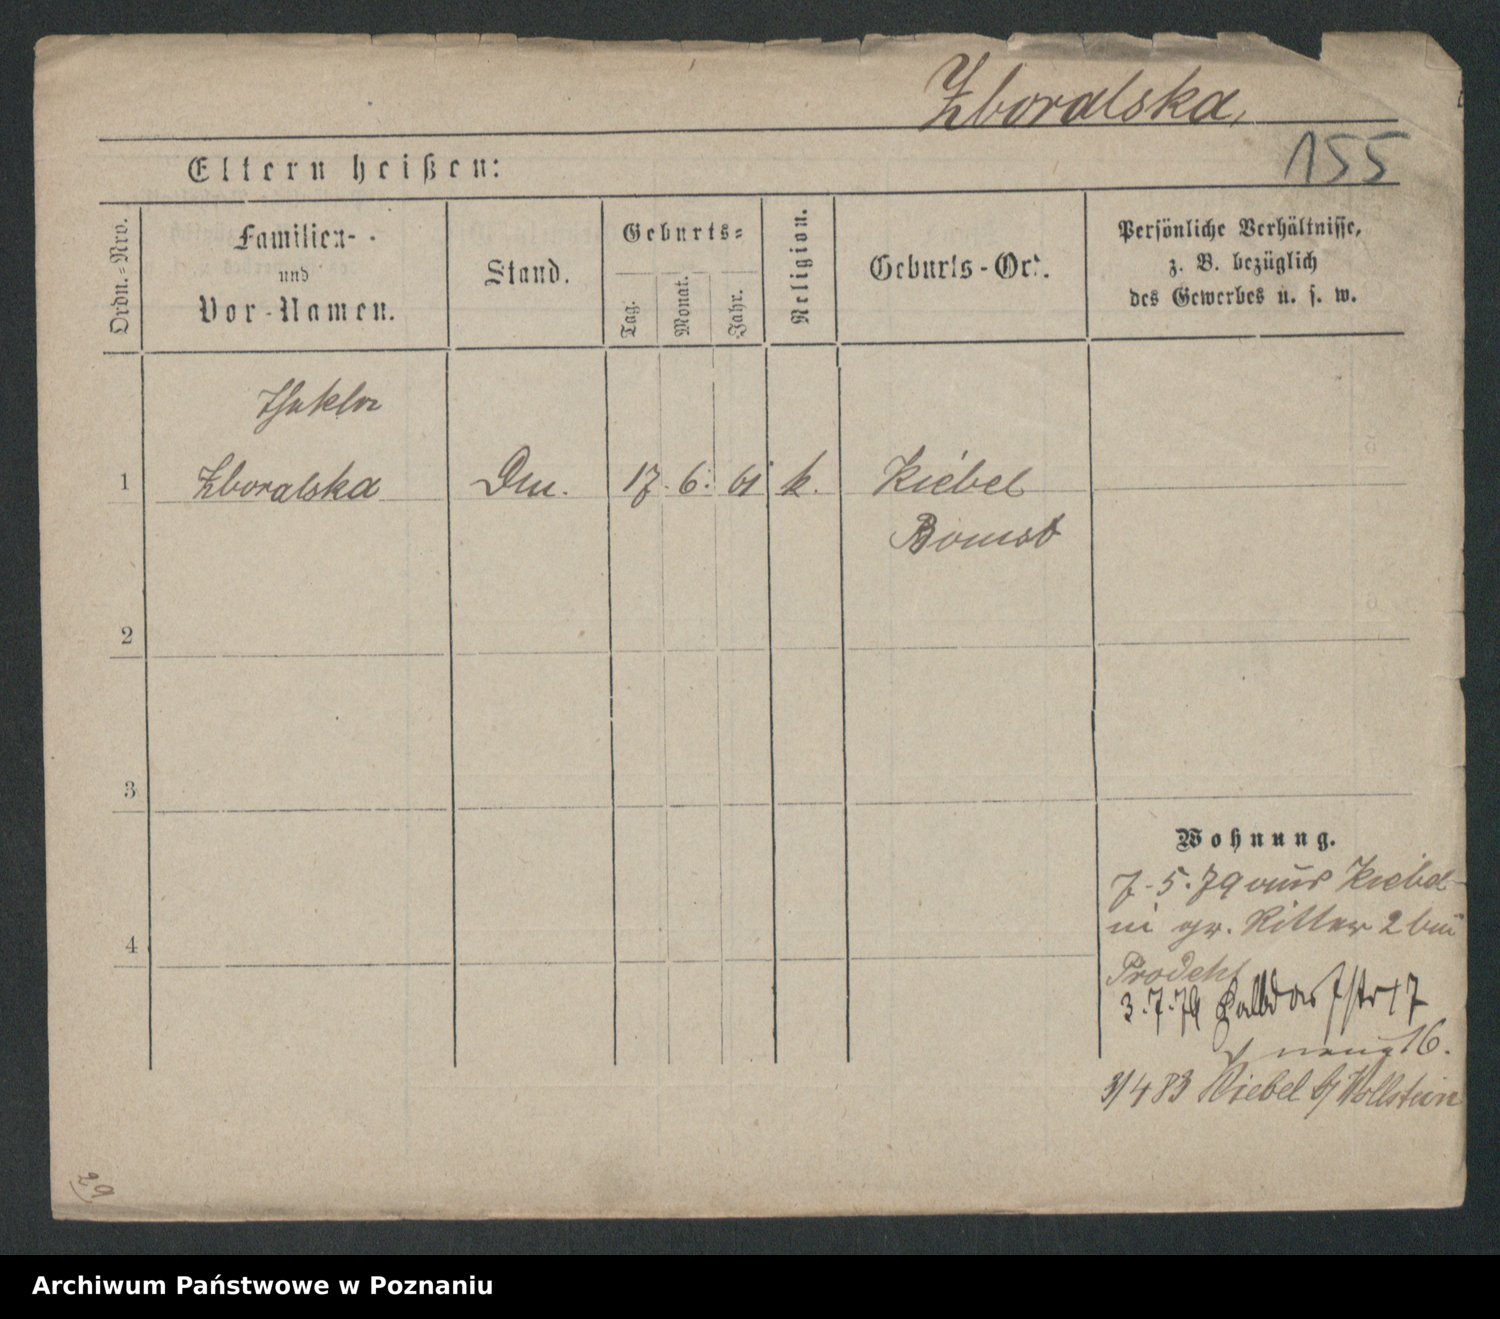 Zboralska,
155
Eltern heißen:
Ordn.-Nro.
Familien-
und
Vor-Namen.
Stand.
Geburts-
Tag.
Monat.
Jahr.
Religion.
Geburts-Ort.
Persönliche Verhältnisse,
z. B. bezüglich
des Gewerbes u. s. w.
1
Zboralska
17. 6. 61 k.
Kiebel
Bomst
2
3
4
Wohnung.
7.5.79 aus Kiebel
in gr. Ritter 2 bei
3.7.79 Halbdorfstr 17
16.
3/4 83 Kiebel b/ Wollstein
29
Archiwum Państwowe w Poznaniu